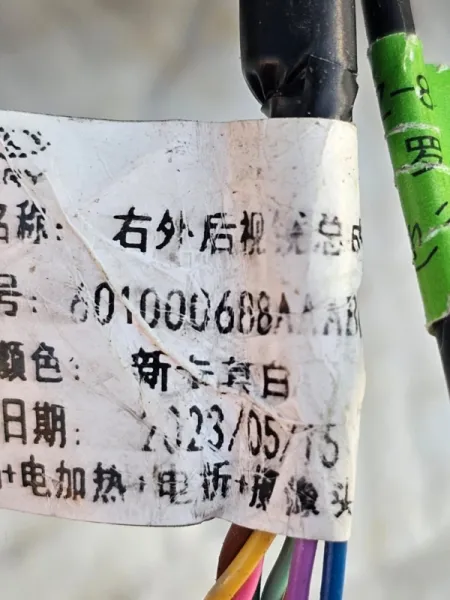 名称: 右外后视镜总成
号: 601000688AAAB
颜色: 新卡真白
日期: 2023/05/15
+电加热+电折+预源头
罗